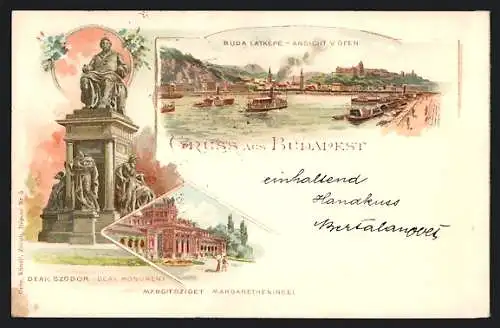 BUDA LÁTKÉPE - ANSICHT V OFEN
GRUSS AUS BUDAPEST
einhaltend
Handkuss
DEÁK SZOBOR - DEÁK MONUMENT
MARGITSZIGET MARGARETHENINSEL